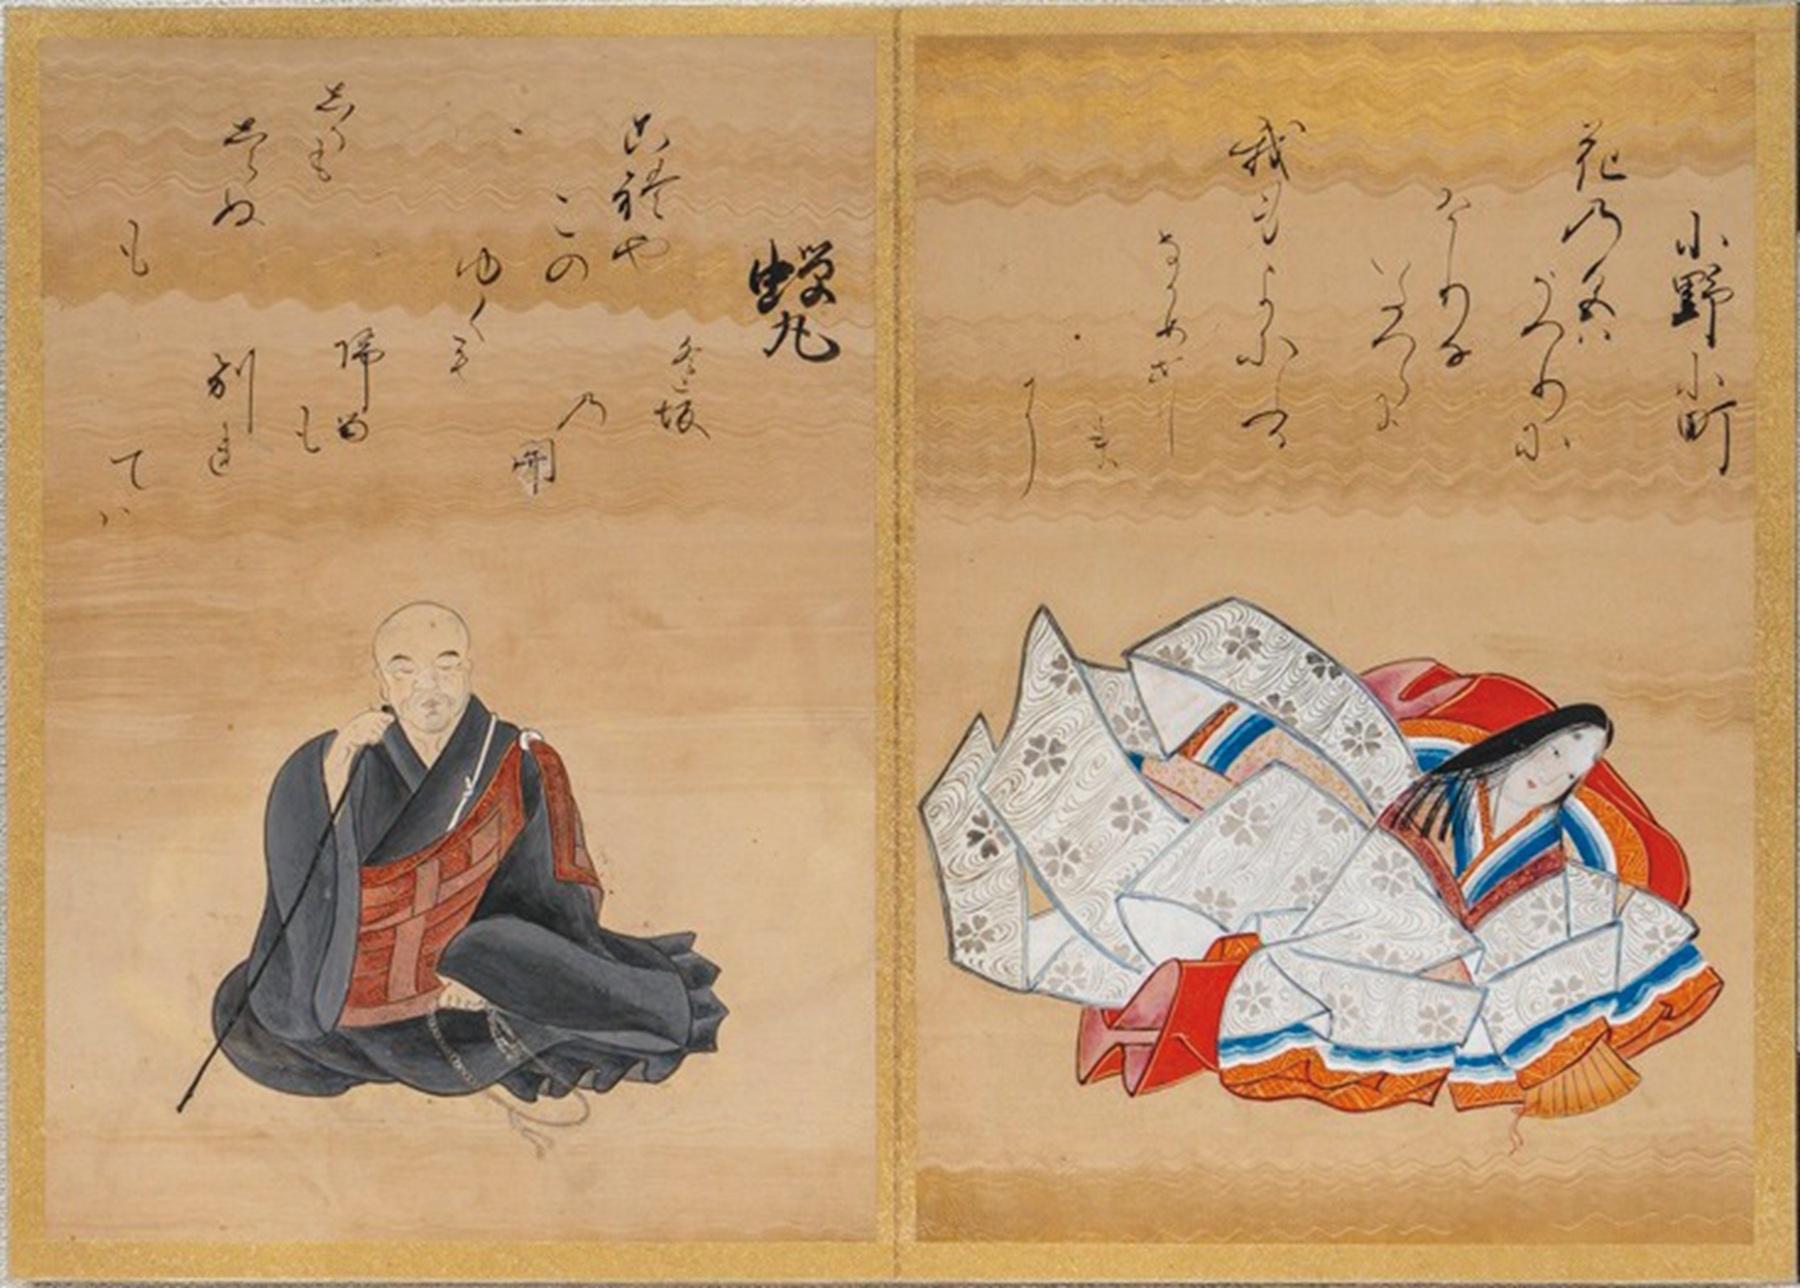 小野小町
花乃色ハ
うつりに
けりな
いたつらに
我みよにふる
なかめせし
まに
蝉丸
これや
この
ゆくも
帰る
も
別れ
てハ
しるも
しらぬ
も
逢坂
乃
関